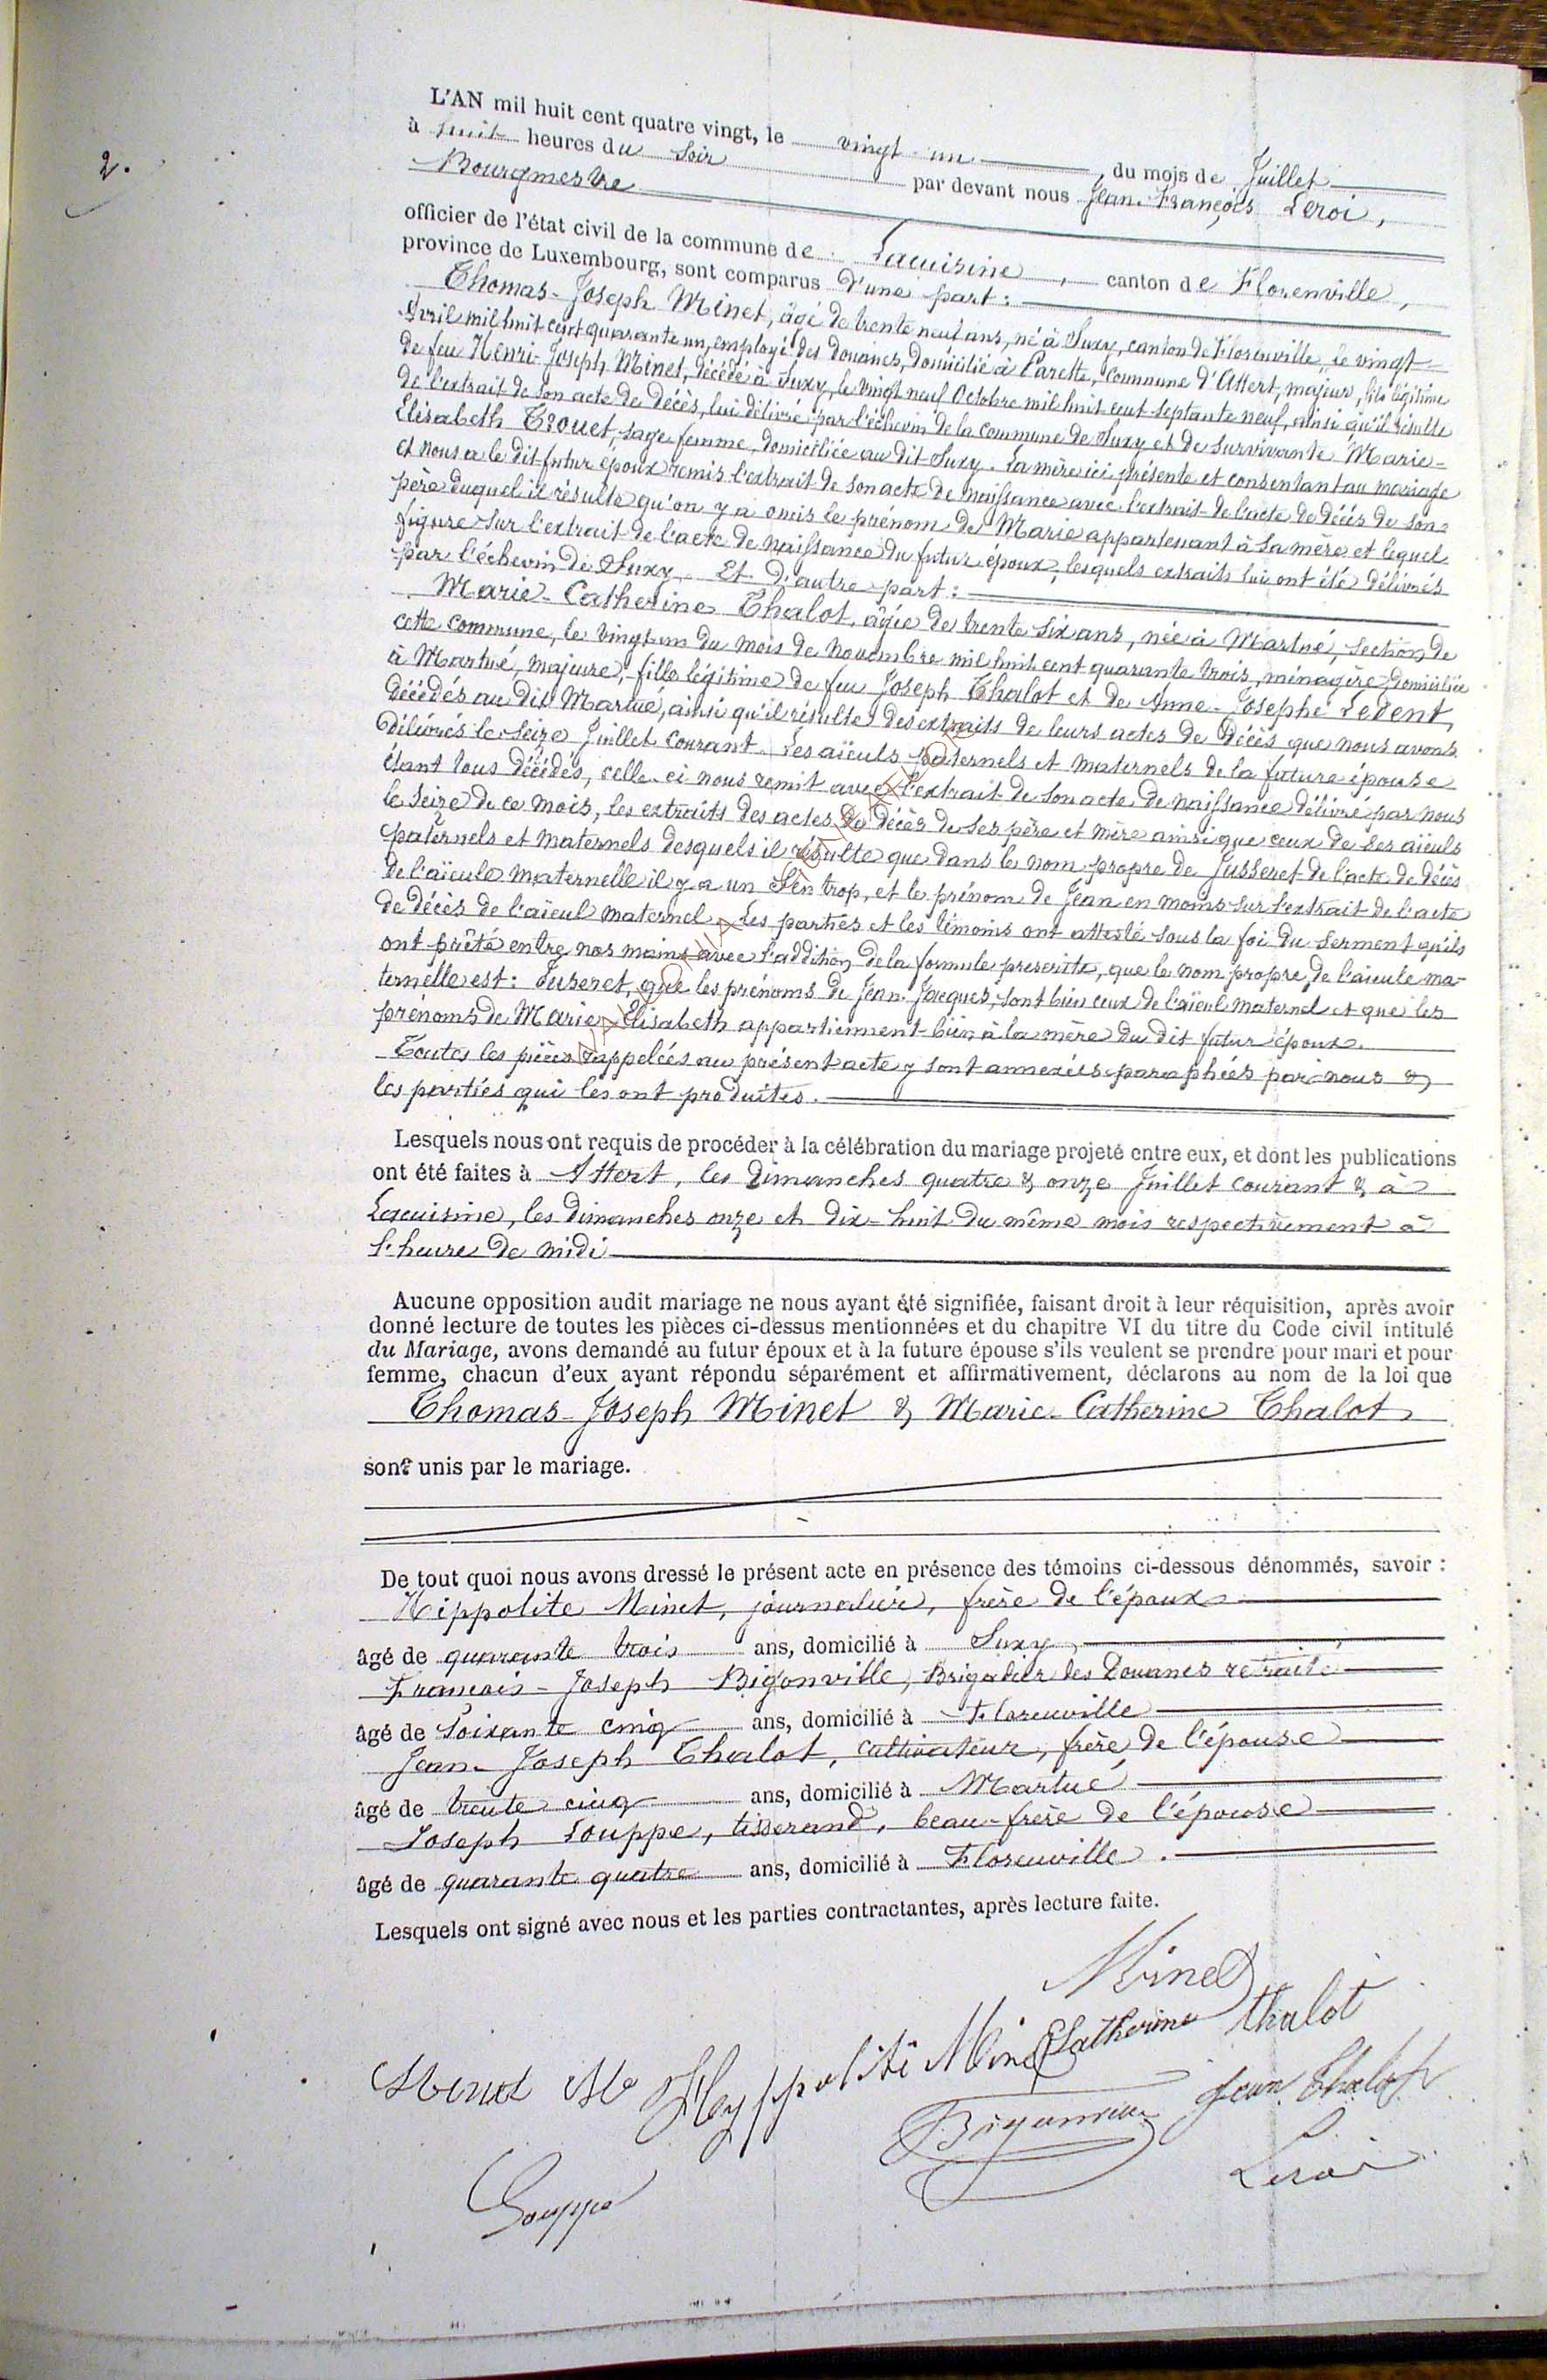 2.
L'AN mil huit cent quatre vingt, le vingt un, du mois de Juillet
à huit heures du soir par devant nous Jean-François Leroi,
Bourgmestre
officier de l'état civil de la commune de Lacuisine, canton de Florenville,
province de Luxembourg, sont comparus d'une part :
Thomas-Joseph Minet, âgé de trente neuf ans, né à Suxy, canton de Florenville, le vingt
Avril mil huit cent quarante un, employé des douanes, domicilié à Parette, commune d'Attert, majeur, fils légitime
de feu Henri-Joseph Minet, décédé à Suxy, le vingt neuf Octobre mil huit cent septante neuf, ainsi qu'il résulte
de l'extrait de son acte de décès, lui délivré par l'échevin de la commune de Suxy et de survivante Marie-
Elisabeth Trouet, sage-femme, domiciliée au dit Suxy. La mère ici présente et consentant au mariage
et nous a le dit futur époux remis l'extrait de son acte de naissance avec l'extrait de l'acte de décès de son
père duquel il résulte qu'on y a omis le prénom de Marie appartenant à sa mère et lequel
figure sur l'extrait de l'acte de naissance du futur époux, lesquels extraits lui ont été délivrés
par l'échevin de Suxy. Et d'autre part :
Marie-Catherine Thalot, âgée de trente six ans, née à Martué, section de
cette commune, le vingt un du mois de novembre mil huit cent quarante trois, ménagère, domiciliée
à Martué, majeure, fille légitime de feu Joseph Thalot et de Anne-Josephe Ledent,
décédés au dit Martué, ainsi qu'il résulte des extraits de leurs actes de décès que nous avons
délivrés le seize Juillet courant. Les aïeuls paternels et maternels de la future épouse
étant tous décédés, celle-ci nous remit avec l'extrait de son acte de naissance délivré par nous
le seize de ce mois, les extraits des actes de décès de ses père et mère ainsi que ceux de ses aïeuls
paternels et maternels desquels il résulte que dans le nom propre de Jusseret de l'acte de décès
de l'aïeule maternelle il y a un S en trop, et le prénom de Jean en moins sur l'extrait de l'acte
de décès de l'aïeul maternel. Les parties et les témoins ont attesté sous la foi du serment qu'ils
ont prêté entre nos mains avec l'addition de la formule prescrite, que le nom propre de l'aïeule ma-
ternelle est : Juseret, que les prénoms de Jean-Jacques, sont bien ceux de l'aïeul maternel et que les
prénoms de Marie-Elisabeth appartiennent bien à la mère du dit futur époux.
Toutes les pièces rappelées au présent acte y sont annexées paraphées par nous &
les parties qui les ont produites.
Lesquels nous ont requis de procéder à la célébration du mariage projeté entre eux, et dont les publications
ont été faites à Attert, les dimanches quatre & onze Juillet courant & à
Lacuisine, les dimanches onze et dix-huit du même mois respectivement à
l'heure de midi
Aucune opposition audit mariage ne nous ayant été signifiée, faisant droit à leur réquisition, après avoir
donné lecture de toutes les pièces ci-dessus mentionnées et du chapitre VI du titre du Code civil intitulé
du Mariage, avons demandé au futur époux et à la future épouse s'ils veulent se prendre pour mari et pour
femme, chacun d'eux ayant répondu séparément et affirmativement, déclarons au nom de la loi que
Thomas-Joseph Minet & Marie-Catherine Thalot
sont unis par le mariage.
De tout quoi nous avons dressé le présent acte en présence des témoins ci-dessous dénommés, savoir :
Hippolite Minet, journalier, frère de l'époux
âgé de quarante trois ans, domicilié à Suxy,
François-Joseph Bigonville, Brigadier des Douanes retraité
âgé de soixante cinq ans, domicilié à Florenville
Jean-Joseph Thalot, cultivateur, frère de l'épouse
âgé de trente cinq ans, domicilié à Martué
Joseph Souppe, tisserand, beau-frère de l'épouse
âgé de quarante quatre ans, domicilié à Florenville.
Lesquels ont signé avec nous et les parties contractantes, après lecture faite.
Minet
Catherine thalot
Hyppolite Minet
Jean Thalot
Bigonville
Leroi
Souppe